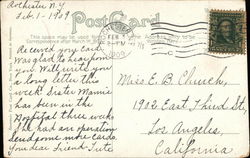 Rochester N.Y
Feb. 1 - 1909
Post Card
Received your Card
was glad to hear from
you. Will write you
a long letter this
week. Sister Mamie
has been in the
Hospital three weeks
She had an operation
Send some more Cards
Your dear Friend
Miss E B Church,
1906 East Third St,
Los Angeles,
California